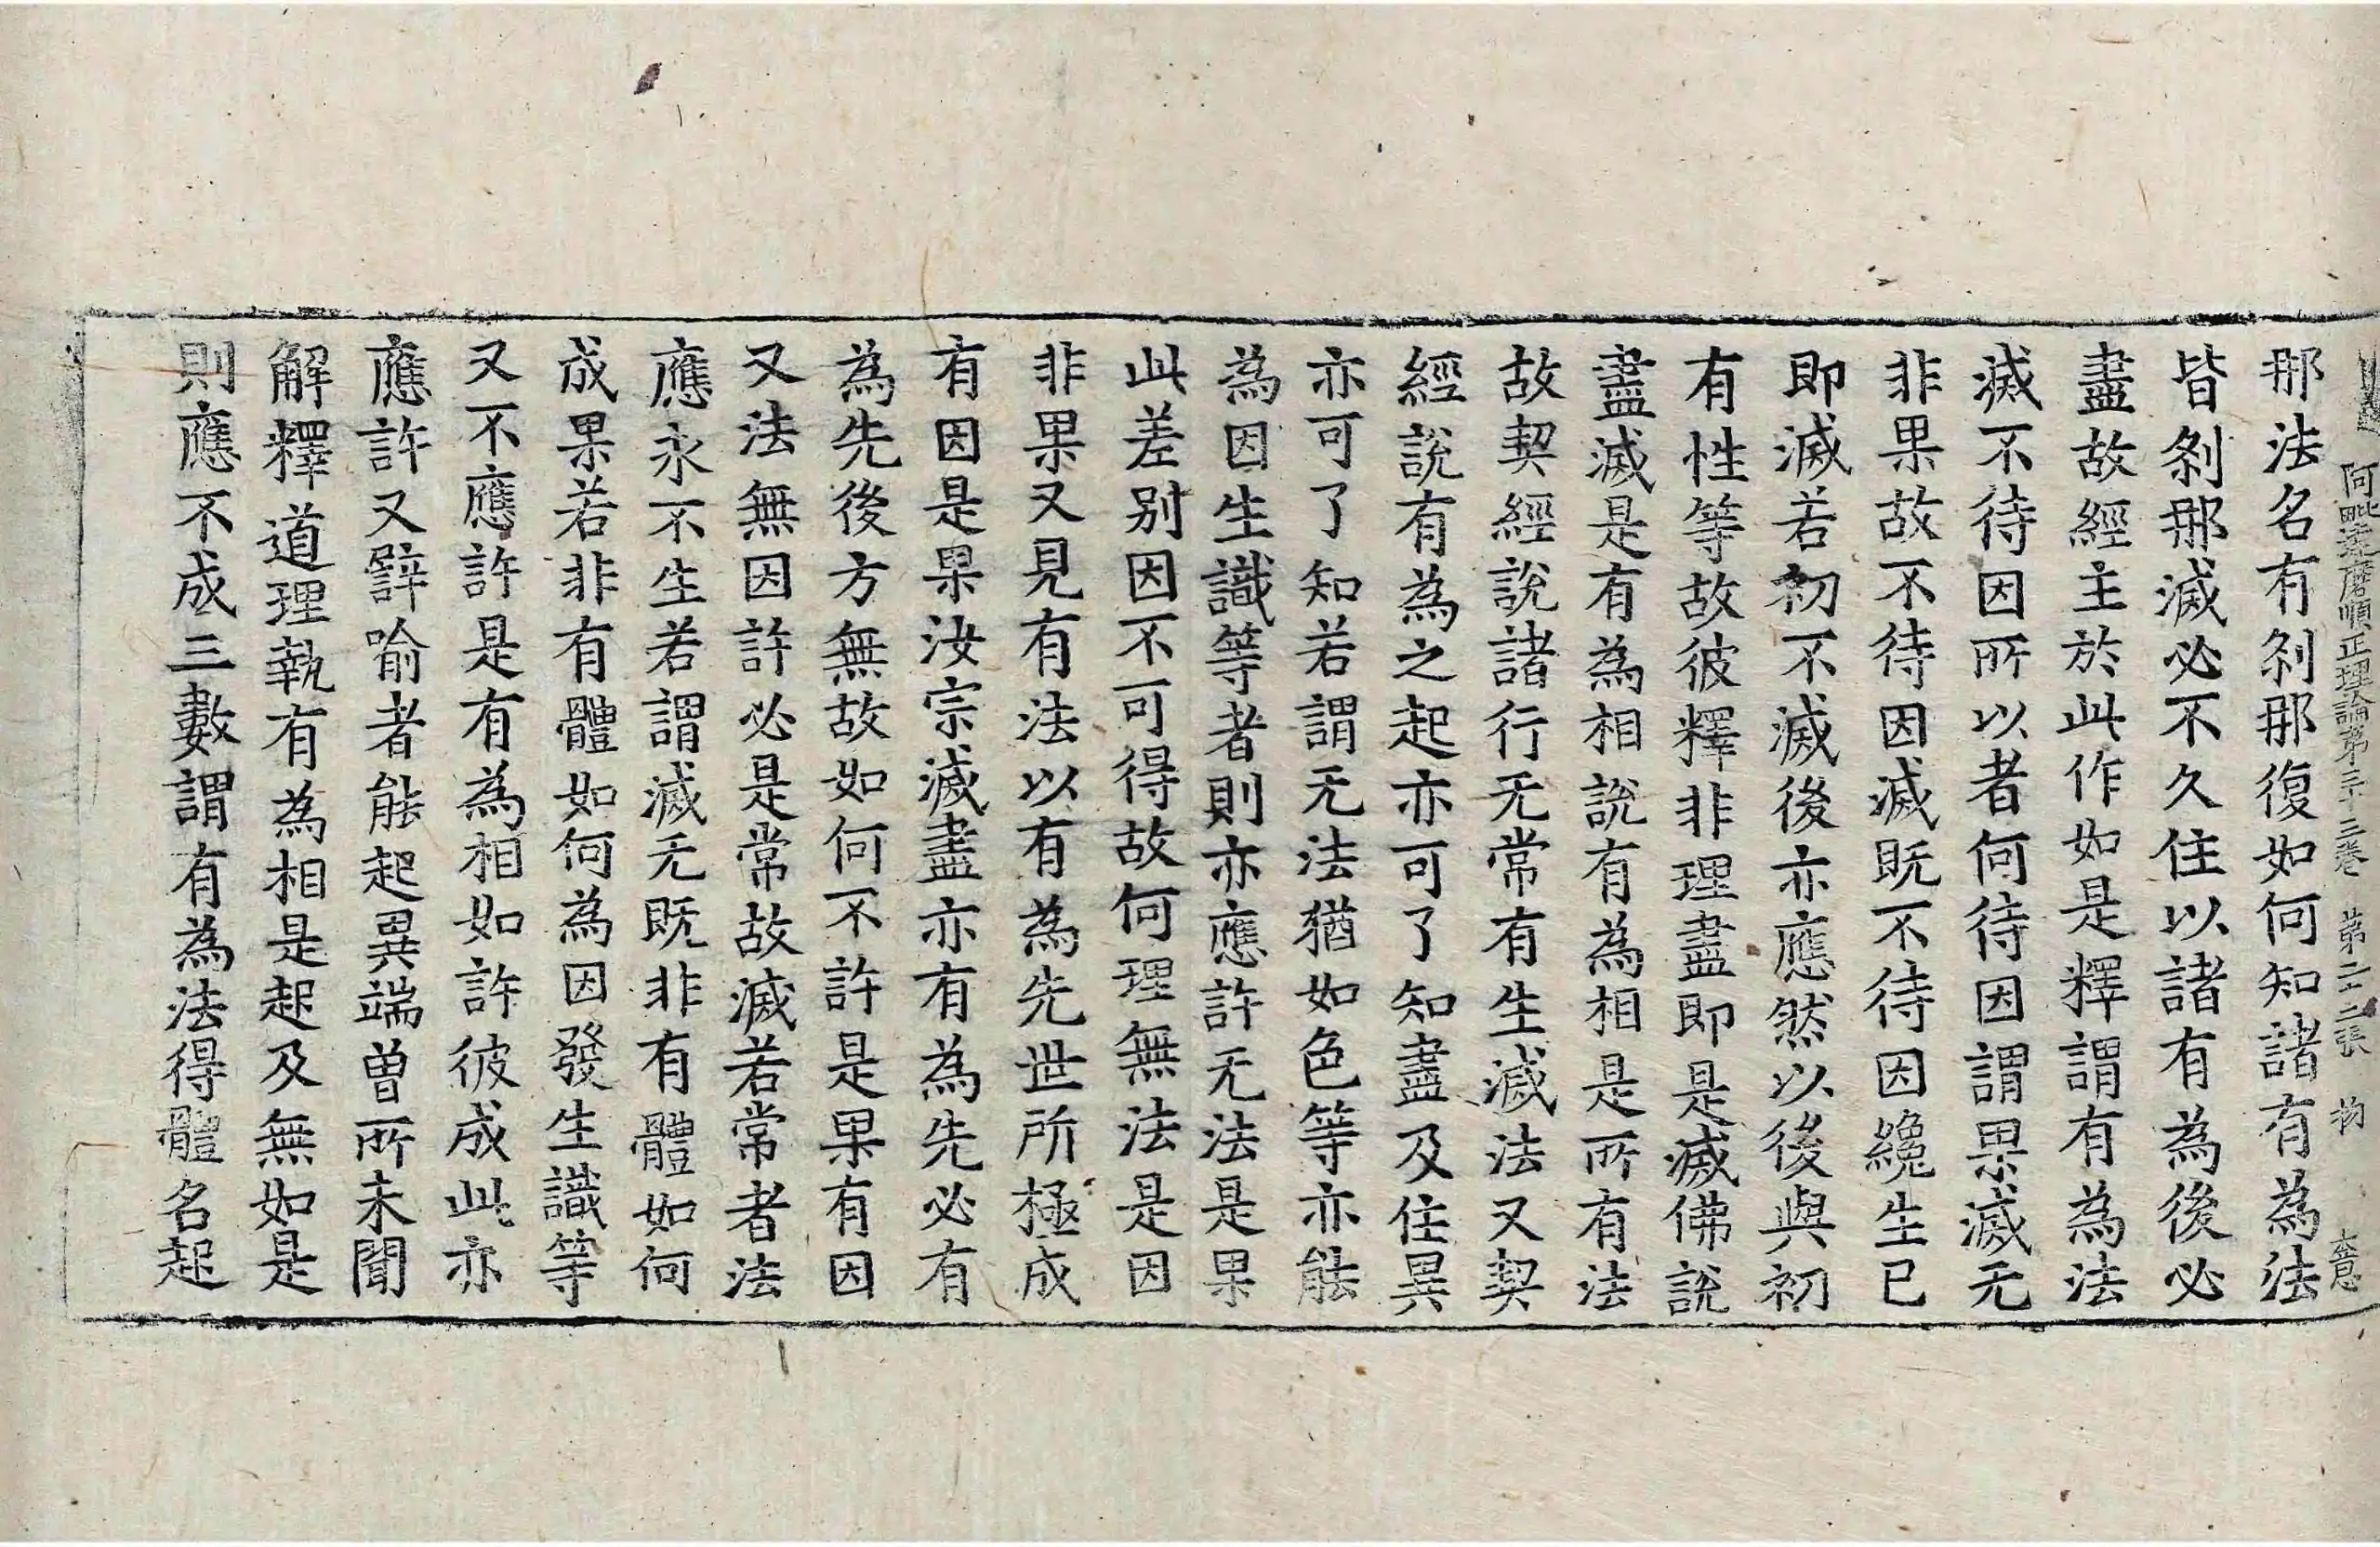 阿毗達磨順正理論第三十三卷 第二十二張 物
那法名有刹那復如何知諸有為法
皆刹那滅必不久住以諸有為後必
盡故經主於此作如是釋謂有為法
滅不待因所以者何待因謂果滅无
非果故不待因滅既不待因纔生已
即滅若初不滅後亦應然以後與初
有性等故彼釋非理盡即是滅佛說
盡滅是有為相說有為相是所有法
故契經說諸行无常有生滅法又契
經說有為之起亦可了知盡及住異
亦可了知若謂无法猶如色等亦能
為因生識等者則亦應許无法是果
此差別因不可得故何理無法是因
非果又見有法以有為先世所極成
有因是果汝宗滅盡亦有為先必有
為先後方無故如何不許是果有因
又法無因許必是常故滅若常者法
應永不生若謂滅无既非有體如何
成果若非有體如何為因發生識等
又不應許是有為相如許彼成此亦
應許又辟喻者能起異端曾所未聞
解釋道理執有為相是起及無如是
則應不成三數謂有為法得體名起